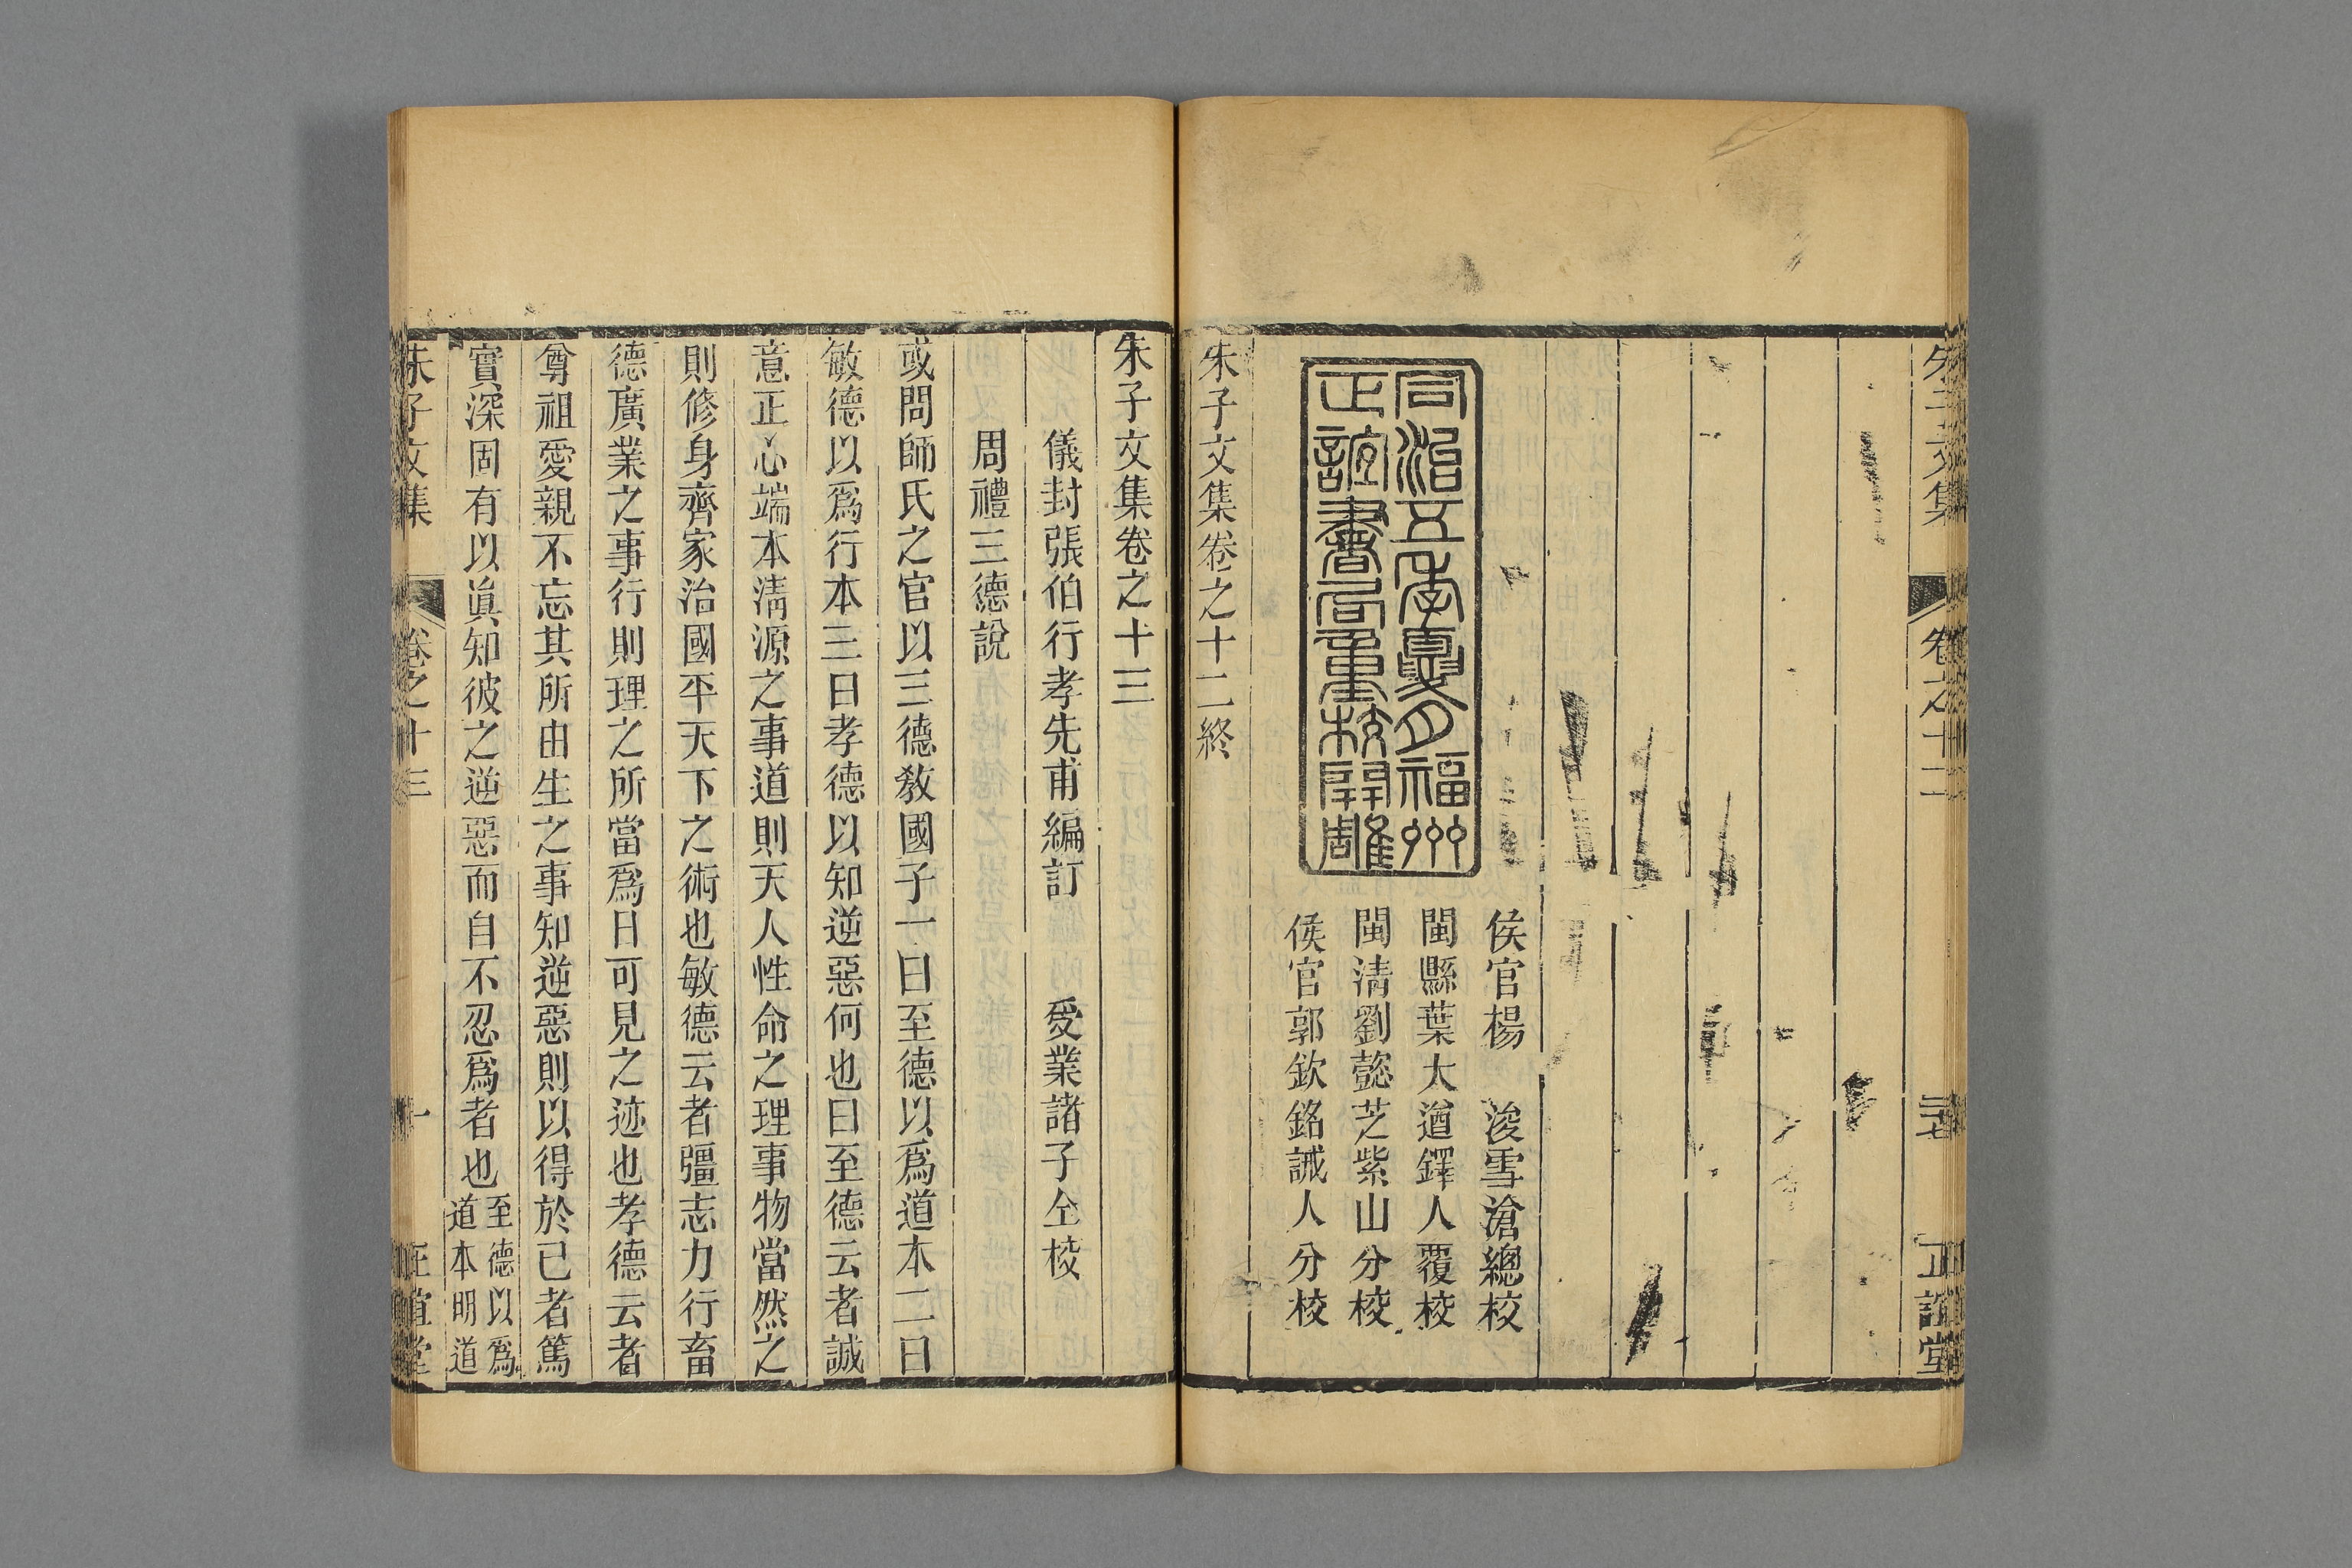 朱子文集
卷之十二
三十七
正誼堂
侯官楊　浚雪滄總校
閩縣葉大遒鐸人覆校
閩清劉懿芝紫山分校
侯官郭欽銘誡人分校
同治五年夏月福州
正誼書局重校開雕
朱子文集卷之十二終
朱子文集卷之十三
儀封張伯行孝先甫編訂　受業諸子仝校
周禮三德說
或問師氏之官以三德教國子一曰至德以爲道本二曰
敏德以爲行本三曰孝德以知逆惡何也曰至德云者誠
意正心端本淸源之事道則天人性命之理事物當然之
則修身齊家治國平天下之術也敏德云者彊志力行畜
德廣業之事行則理之所當爲日可見之迹也孝德云者
尊祖愛親不忘其所由生之事知逆惡則以得於己者篤
實深固有以眞知彼之逆惡而自不忍爲者也至德以爲
道本明道
朱子文集
卷之十三
一
正誼堂